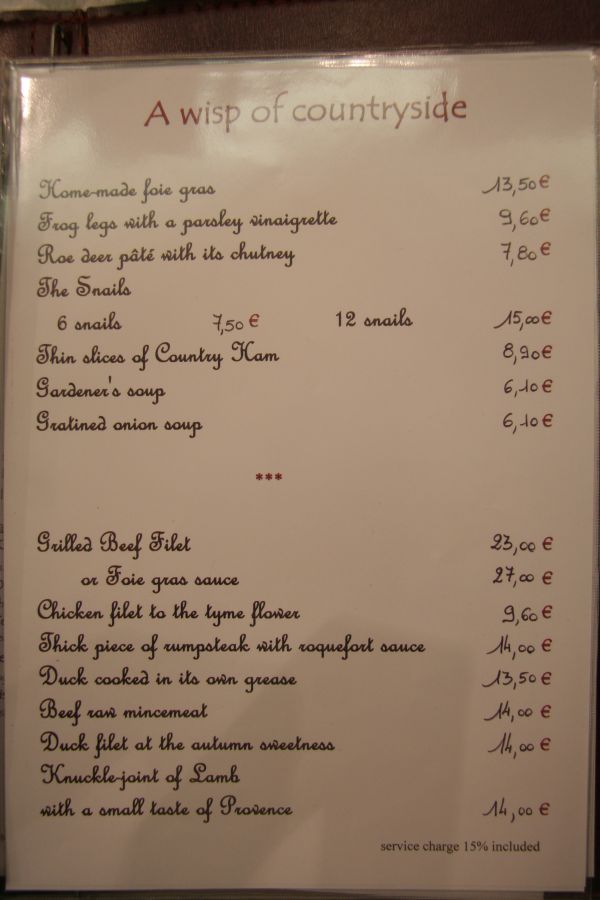 A wisp of countryside
Home-made foie gras 13,50 €
Frog legs with a parsley vinaigrette 9,60 €
Roe deer pâté with its chutney 7,80 €
The Snails
6 snails 7,50 € 12 snails 15,00 €
Thin slices of Country Ham 8,90 €
Gardener's soup 6,10 €
Gratined onion soup 6,10 €
***
Grilled Beef Filet 23,00 €
or Foie gras sauce 27,00 €
Chicken filet to the tyme flower 9,60 €
Thick piece of rumpsteak with roquefort sauce 14,00 €
Duck cooked in its own grease 13,50 €
Beef raw mincemeat 14,00 €
Duck filet at the autumn sweetness 14,00 €
Knuckle-joint of Lamb
with a small taste of Provence 14,00 €
service charge 15% included